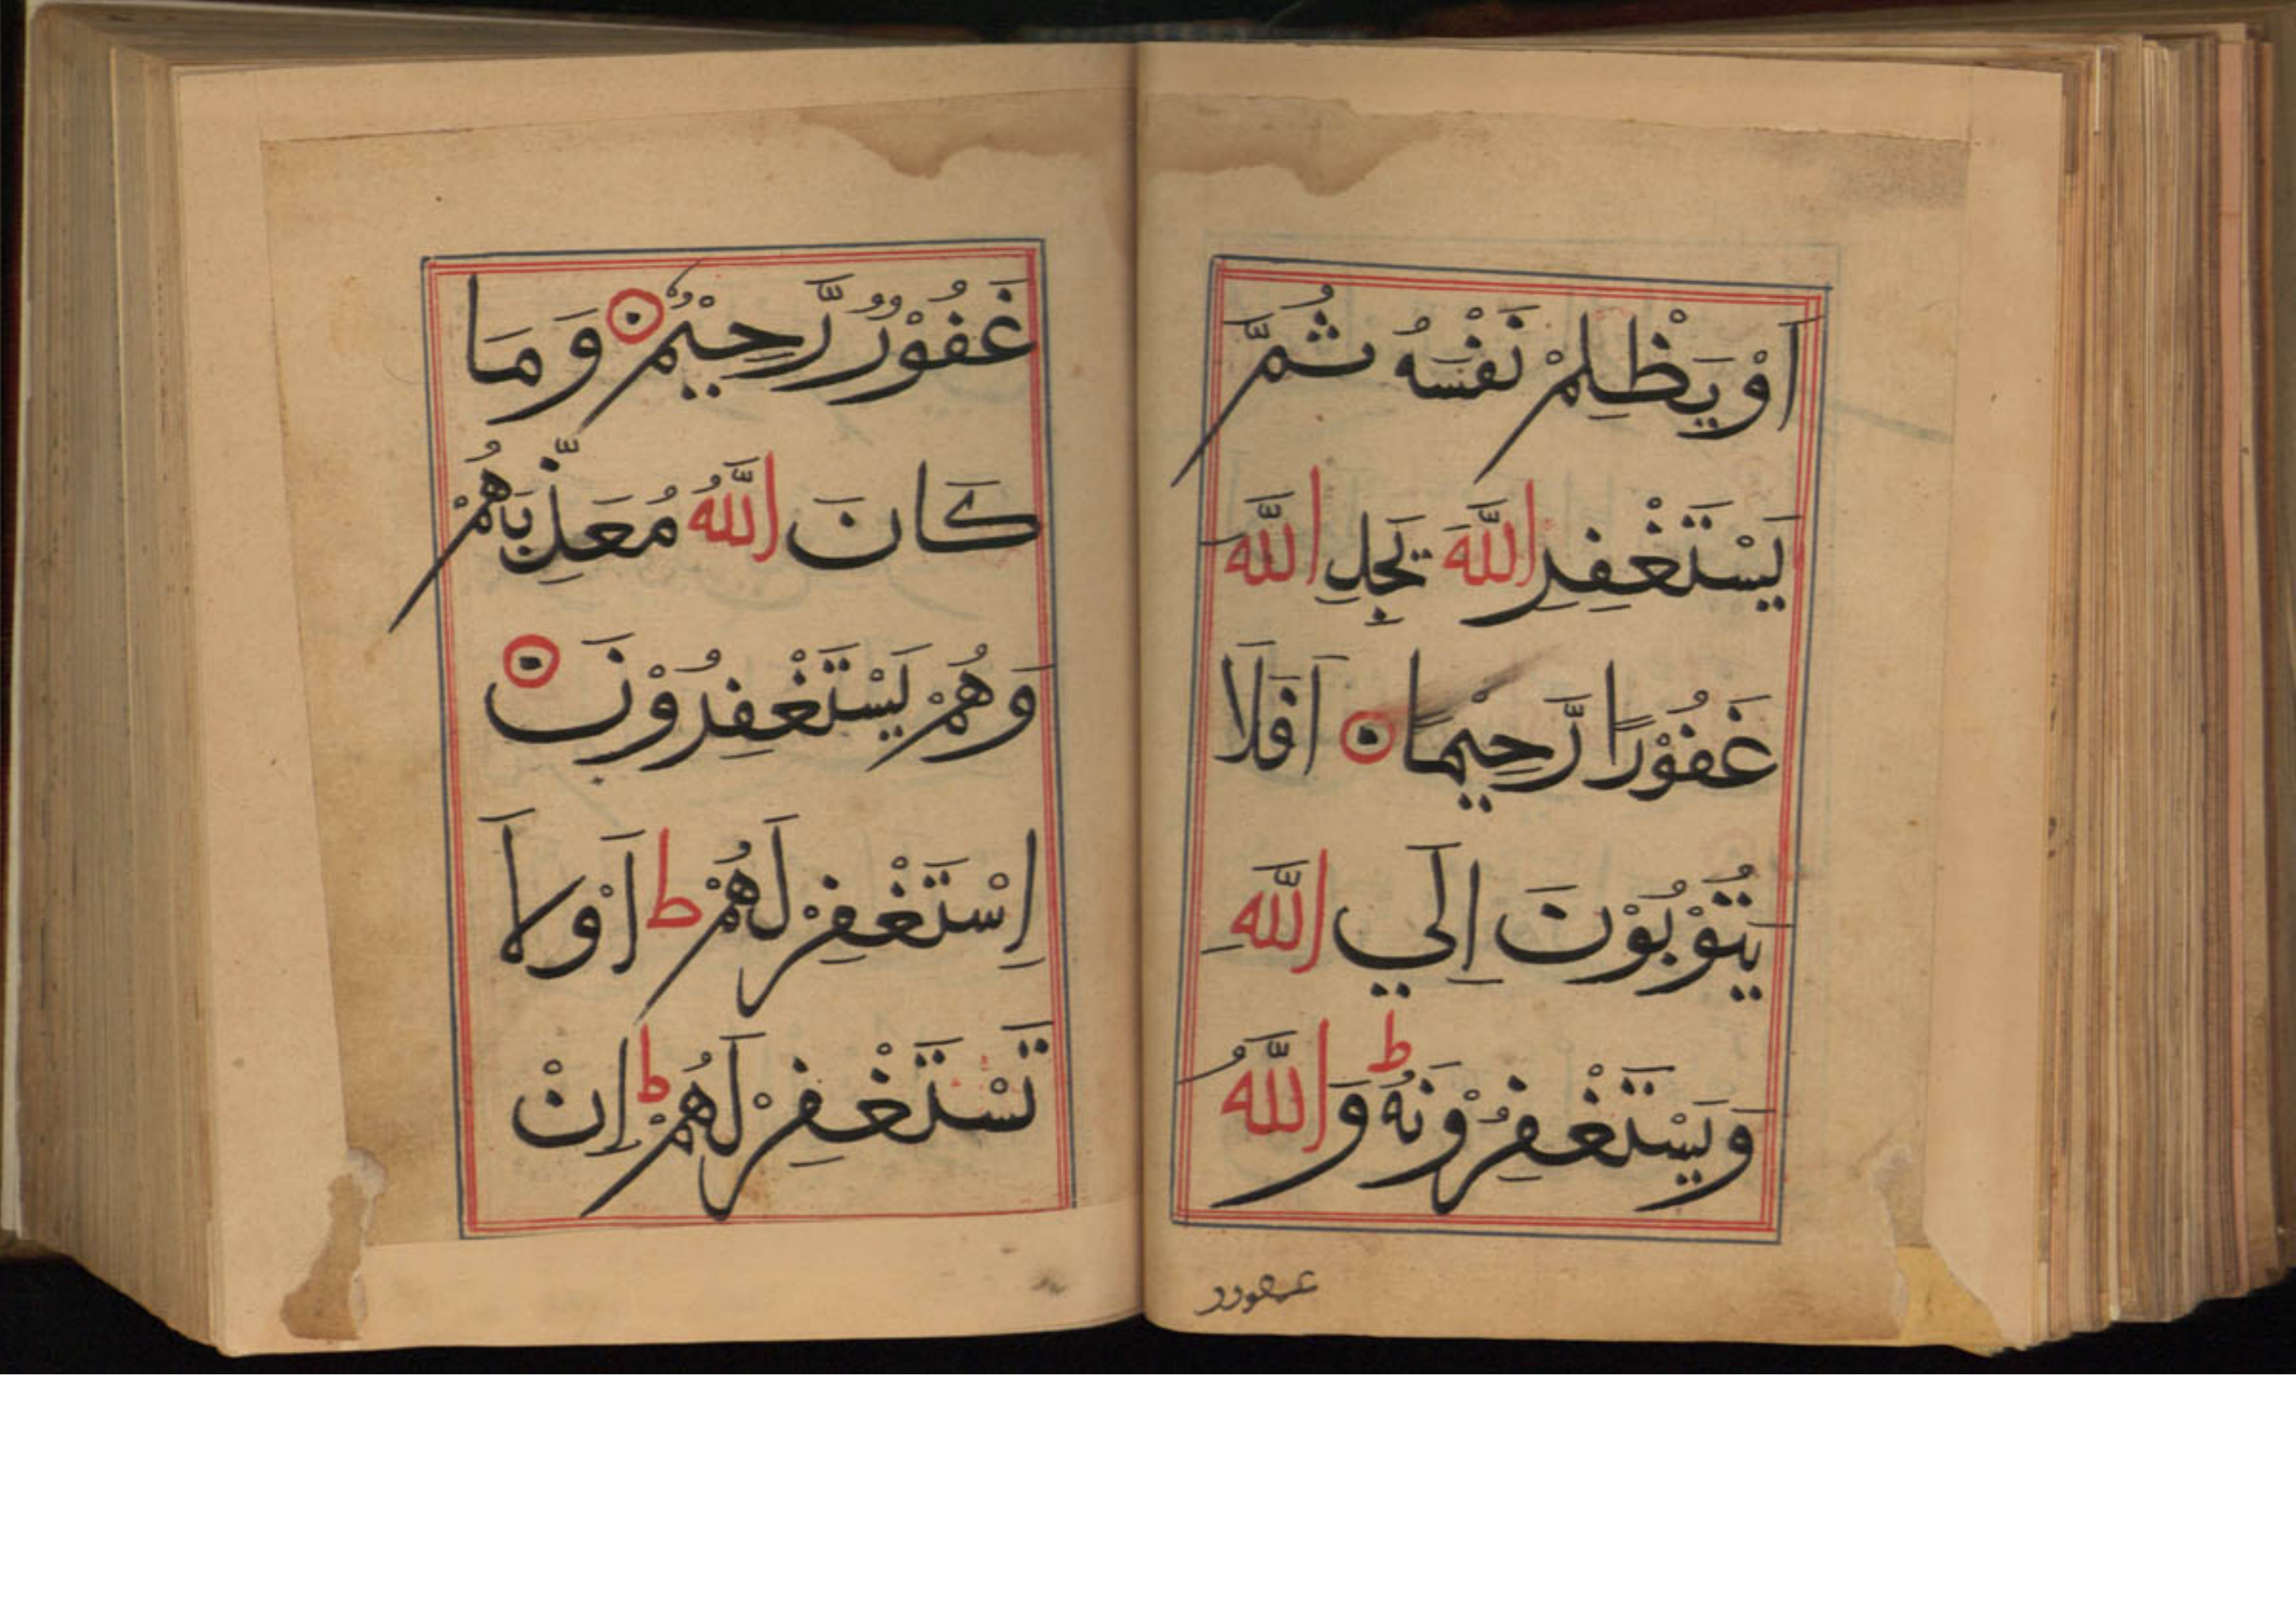 اَوْ يَظْلِمْ نَفْسَهُ ثُمَّ
يَسْتَغْفِرِ اللّٰهَ يَجِدِ اللّٰهَ
غَفُوْرًا رَّحِيْمًا ۝ اَفَلَا
يَتُوْبُوْنَ اِلَي اللّٰهِ
وَيَسْتَغْفِرُوْنَهُ ط وَاللّٰهُ
غفورر
غَفُوْرٌ رَّحِيْمٌ ۝ وَمَا
كَانَ اللّٰهُ مُعَذِّبَهُمْ
وَهُمْ يَسْتَغْفِرُوْنَ ۝
اِسْتَغْفِرْ لَهُمْ ط اَوْلَا
تَسْتَغْفِرْ لَهُمْ ط اِنْ